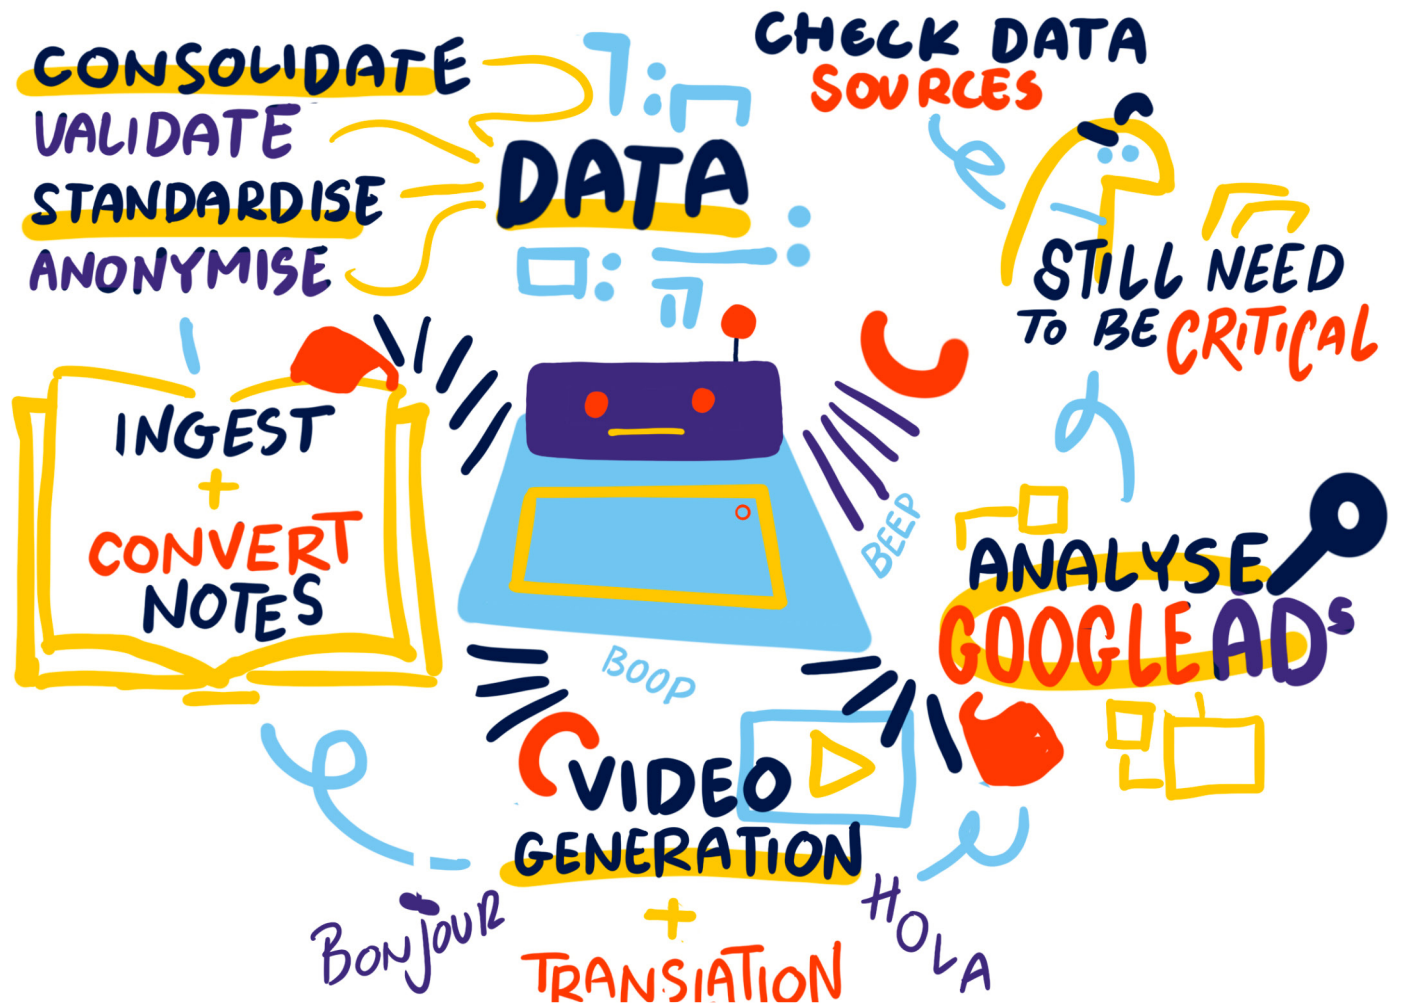 CONSOLIDATE
VALIDATE
STANDARDISE
ANONYMISE
DATA
CHECK DATA
SOURCES
STILL NEED
TO BE CRITICAL
INGEST
+
CONVERT
NOTES
BEEP
BOOP
ANALYSE
GOOGLE ADS
VIDEO
GENERATION
+
TRANSLATION
BONJOUR
HOLA